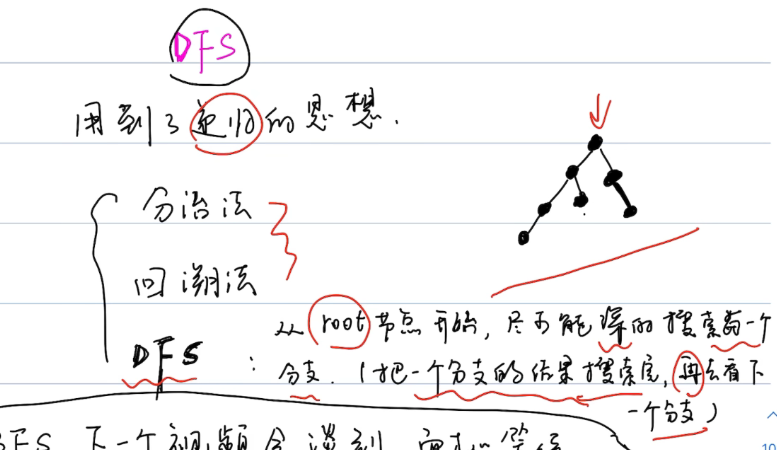 DFS
用到了递归的思想.
分治法
回溯法
DFS : 从root节点开始, 尽可能深的搜索每一个
分支. (把一个分支的结果搜索完, 再去看下
一个分支)
BFS 下一个视频会谈到
10